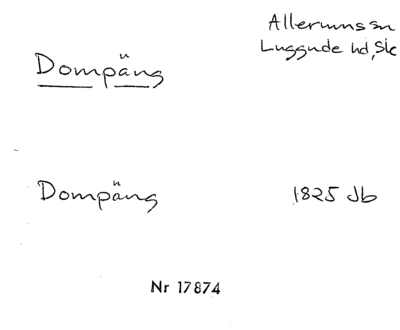 Allerums sn
Luggude hd, Sk
Dompäng
Dompäng 1825 Jb
Nr 17874